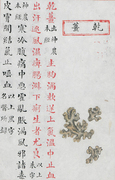 乾薑
主胸滿欬逆上氣溫中止血
出汗逐風濕痹腸澼下痢生者尤良
寒冷腹痛中惡霍亂脹滿風邪諸毒
皮膚間結氣止唾血以上黑字名醫所錄